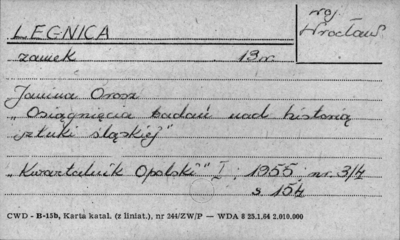 LEGNICA
woj.
Wrocław
zamek 13 w.
Janina Orosz
„Osiągnięcia badań nad historią
sztuki śląskiej"
„Kwartalnik Opolski" I, 1955, nr. 3/4
s. 154
CWD - B-15b, Karta katal. (z liniat.), nr 244/ZW/P — WDA 8 25.1.64 2.010.000